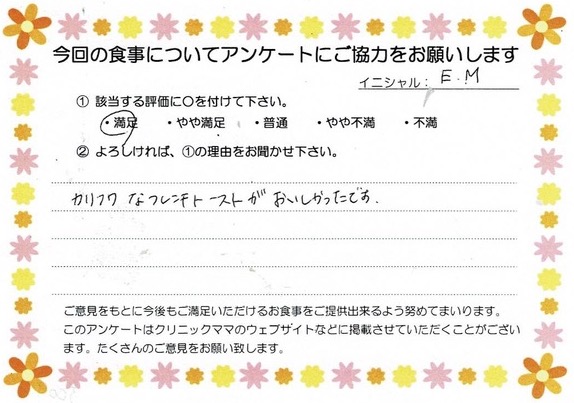 今回の食事についてアンケートにご協力をお願いします
イニシャル： E.M
① 該当する評価に○を付けて下さい。
・満足 ・やや満足 ・普通 ・やや不満 ・不満
② よろしければ、①の理由をお聞かせ下さい。
カリフワなフレンチトーストがおいしかったです.
ご意見をもとに今後もご満足いただけるお食事をご提供出来るよう努めてまいります。
このアンケートはクリニックママのウェブサイトなどに掲載させていただくことがござい
ます。たくさんのご意見をお願い致します。